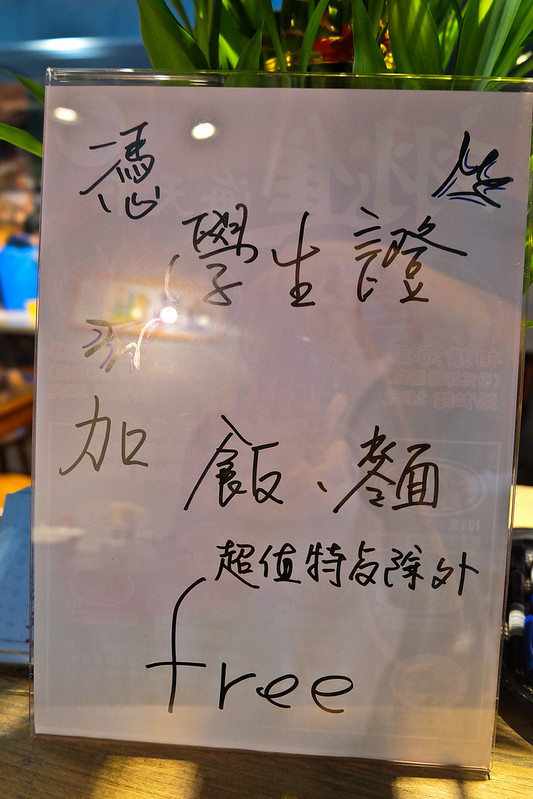 憑
學生證
加 飯、麵
超值特与除外
free